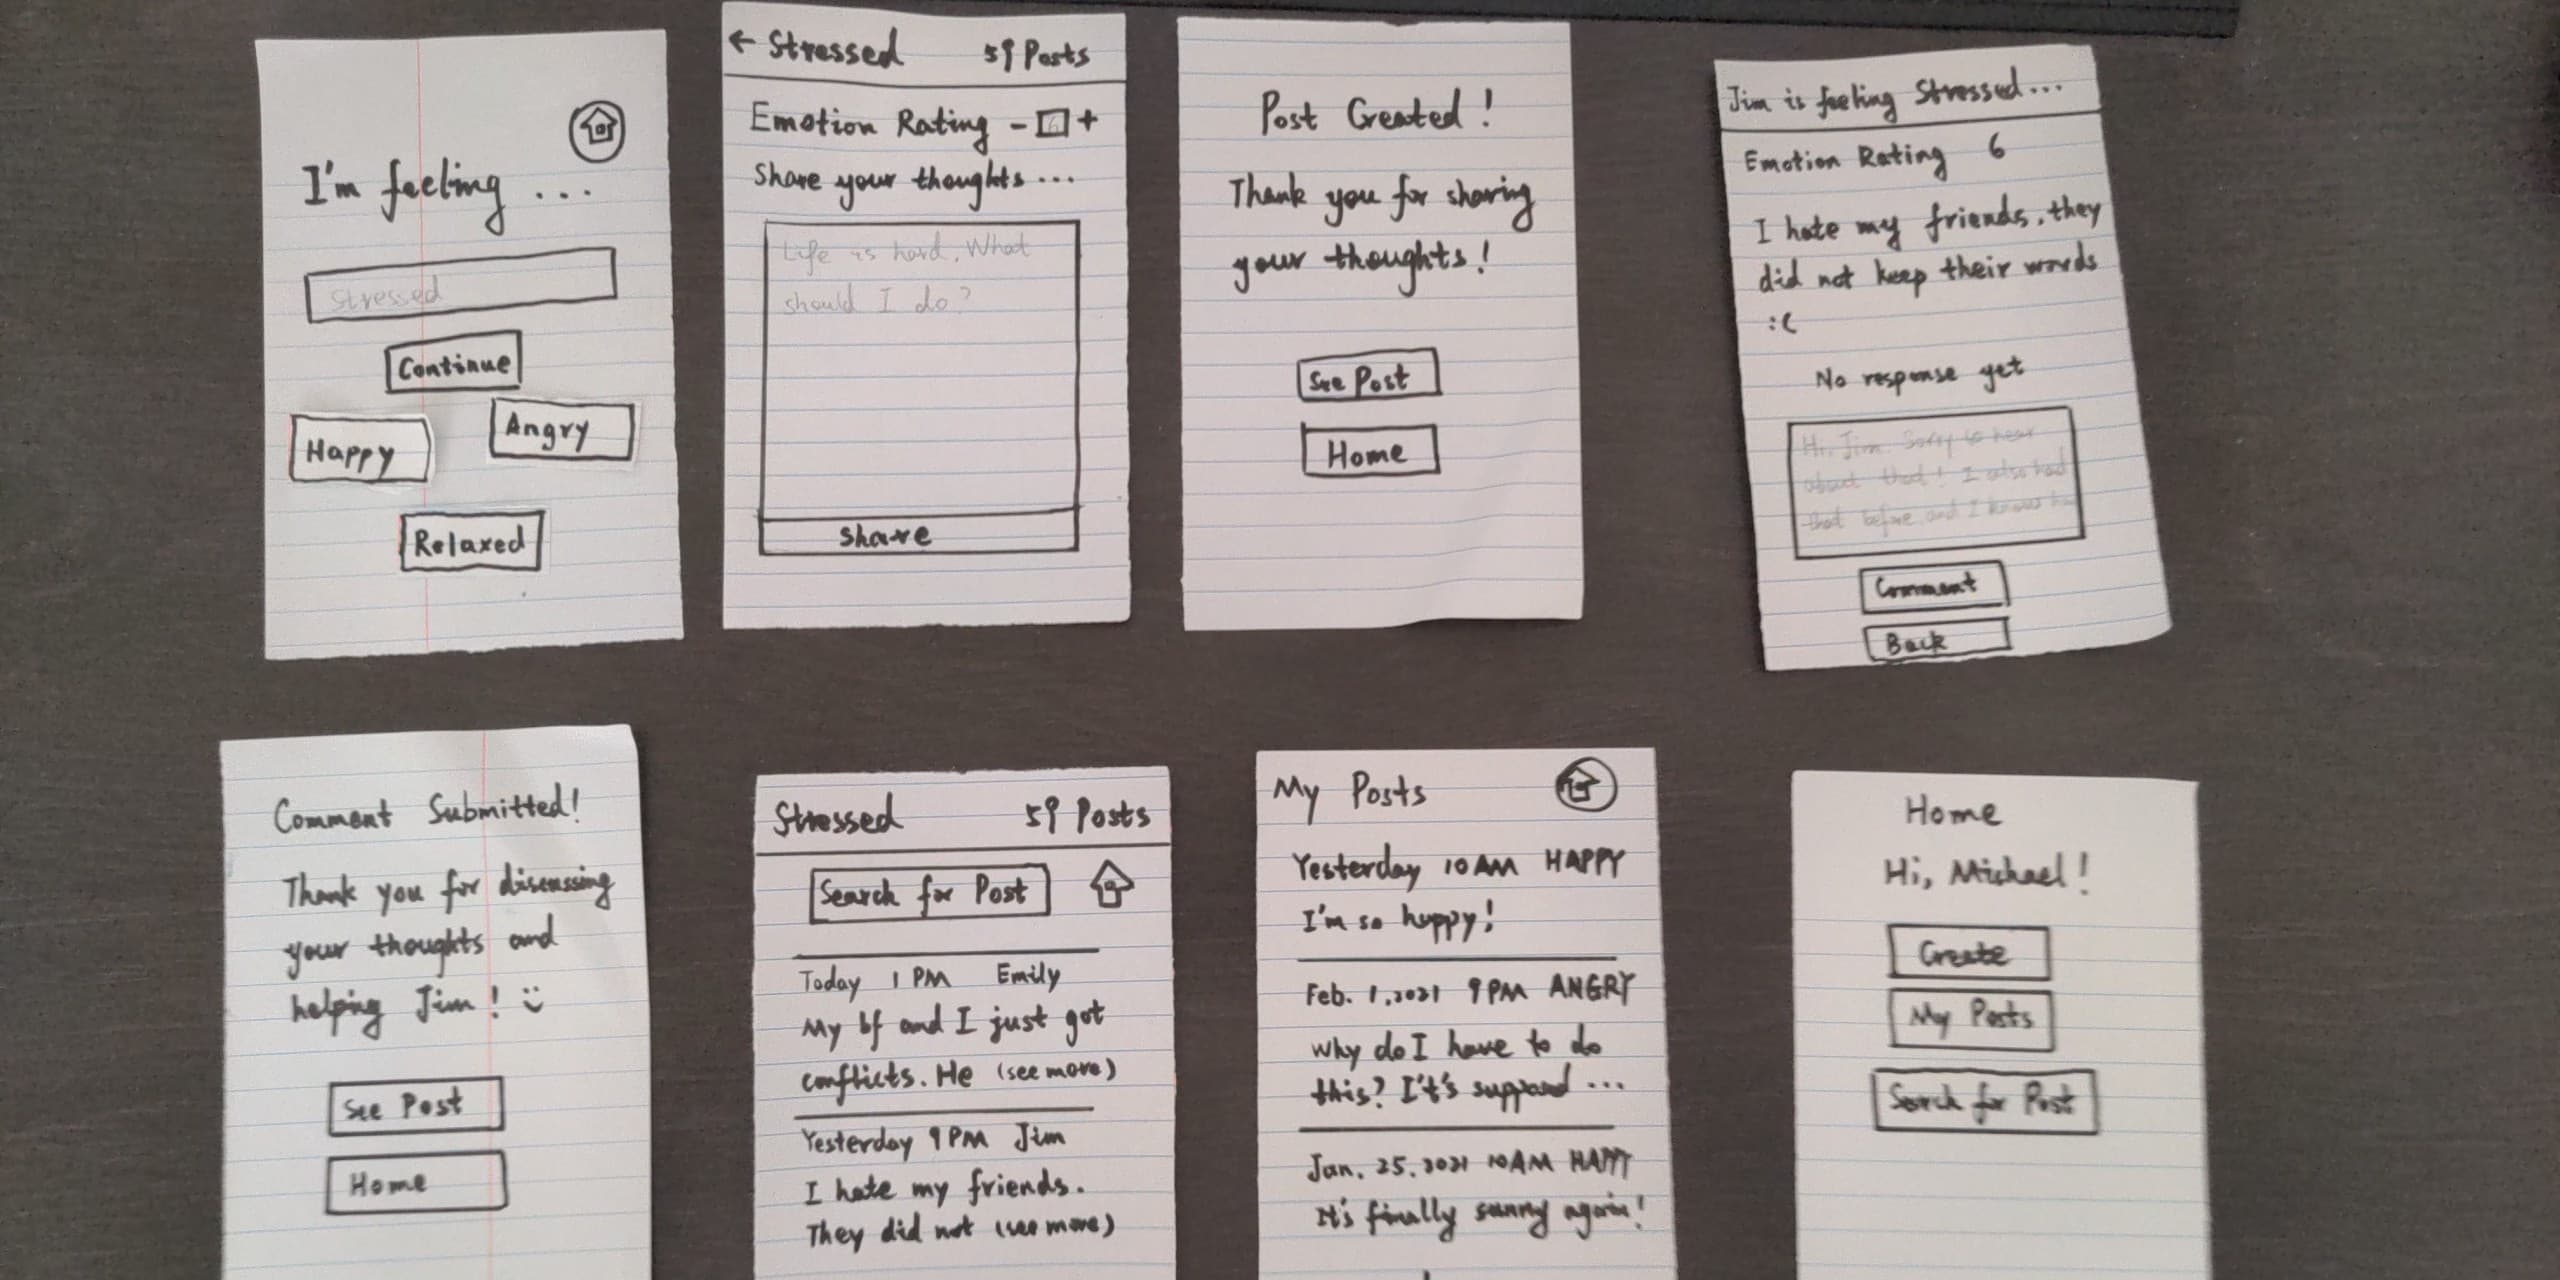 I'm feeling ...
Stressed
Continue
Happy
Angry
Relaxed
← Stressed 59 Posts
Emotion Rating - 6 +
Share your thoughts ...
Life is hard. What
should I do?
Share
Post Created!
Thank you for sharing
your thoughts!
See Post
Home
Jim is feeling Stressed...
Emotion Rating 6
I hate my friends, they
did not keep their words
:(
No response yet
Hi, Jim. Sorry to hear
about that! I also had
that before and I know
Comment
Back
Comment Submitted!
Thank you for discussing
your thoughts and
helping Jim! :)
See Post
Home
Stressed 59 Posts
Search for Post
Today 1 PM Emily
My bf and I just got
conflicts. He (see more)
Yesterday 9 PM Jim
I hate my friends.
They did not (see more)
My Posts
Yesterday 10 AM HAPPY
I'm so happy!
Feb. 1, 2021 9 PM ANGRY
Why do I have to do
this? It's ...
Jan. 25, 2021 10 AM HAPPY
It's finally sunny again!
Home
Hi, Michael!
Create
My Posts
Search for Post